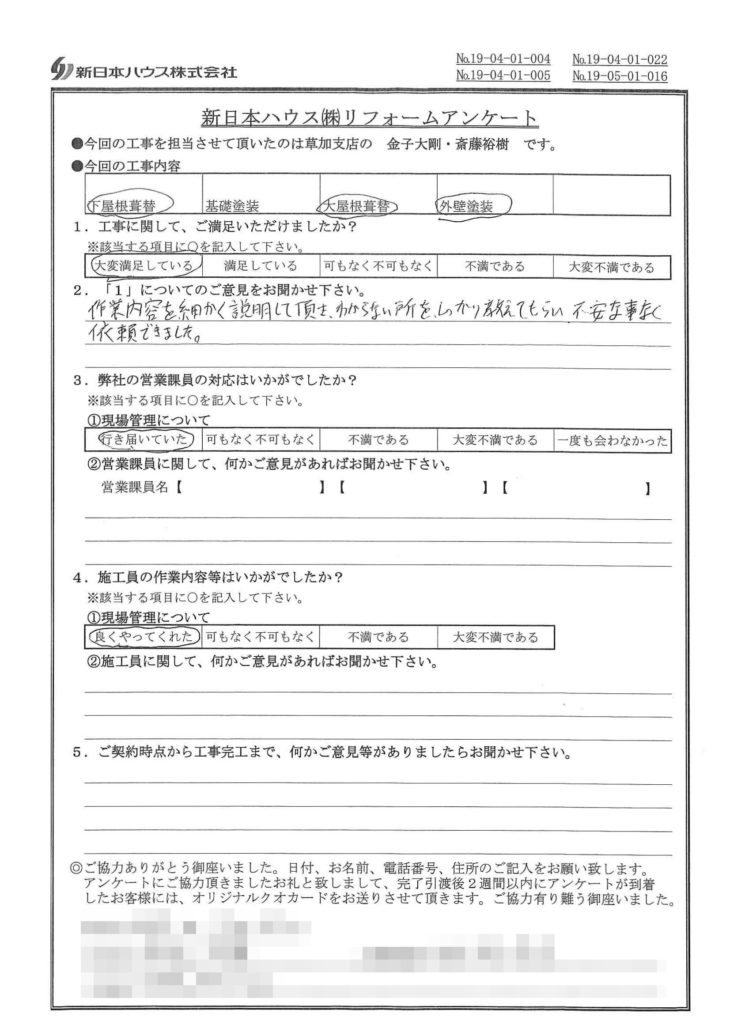 新日本ハウス株式会社
№19-04-01-004 №19-04-01-022
№19-04-01-005 №19-05-01-016
新日本ハウス㈱リフォームアンケート
●今回の工事を担当させて頂いたのは草加支店の 金子大剛・斎藤裕樹 です。
●今回の工事内容
下屋根葺替 基礎塗装 大屋根葺替 外壁塗装
1．工事に関して、ご満足いただけましたか？
※該当する項目に○を記入して下さい。
大変満足している 満足している 可もなく不可もなく 不満である 大変不満である
2．「1」についてのご意見をお聞かせ下さい。
作業内容を細かく説明して頂き、わからない所を、しっかり教えてもらい 不安な事なく
依頼できました。
3．弊社の営業課員の対応はいかがでしたか？
※該当する項目に○を記入して下さい。
①現場管理について
行き届いていた 可もなく不可もなく 不満である 大変不満である 一度も会わなかった
②営業課員に関して、何かご意見があればお聞かせ下さい。
営業課員名【 】【 】【 】
4．施工員の作業内容等はいかがでしたか？
※該当する項目に○を記入して下さい。
①現場管理について
良くやってくれた 可もなく不可もなく 不満である 大変不満である
②施工員に関して、何かご意見があればお聞かせ下さい。
5．ご契約時点から工事完工まで、何かご意見等がありましたらお聞かせ下さい。
◎ご協力ありがとう御座いました。日付、お名前、電話番号、住所のご記入をお願い致します。
アンケートにご協力頂きましたお礼と致しまして、完了引渡後２週間以内にアンケートが到着
したお客様には、オリジナルクオカードをお送りさせて頂きます。ご協力有り難う御座いました。